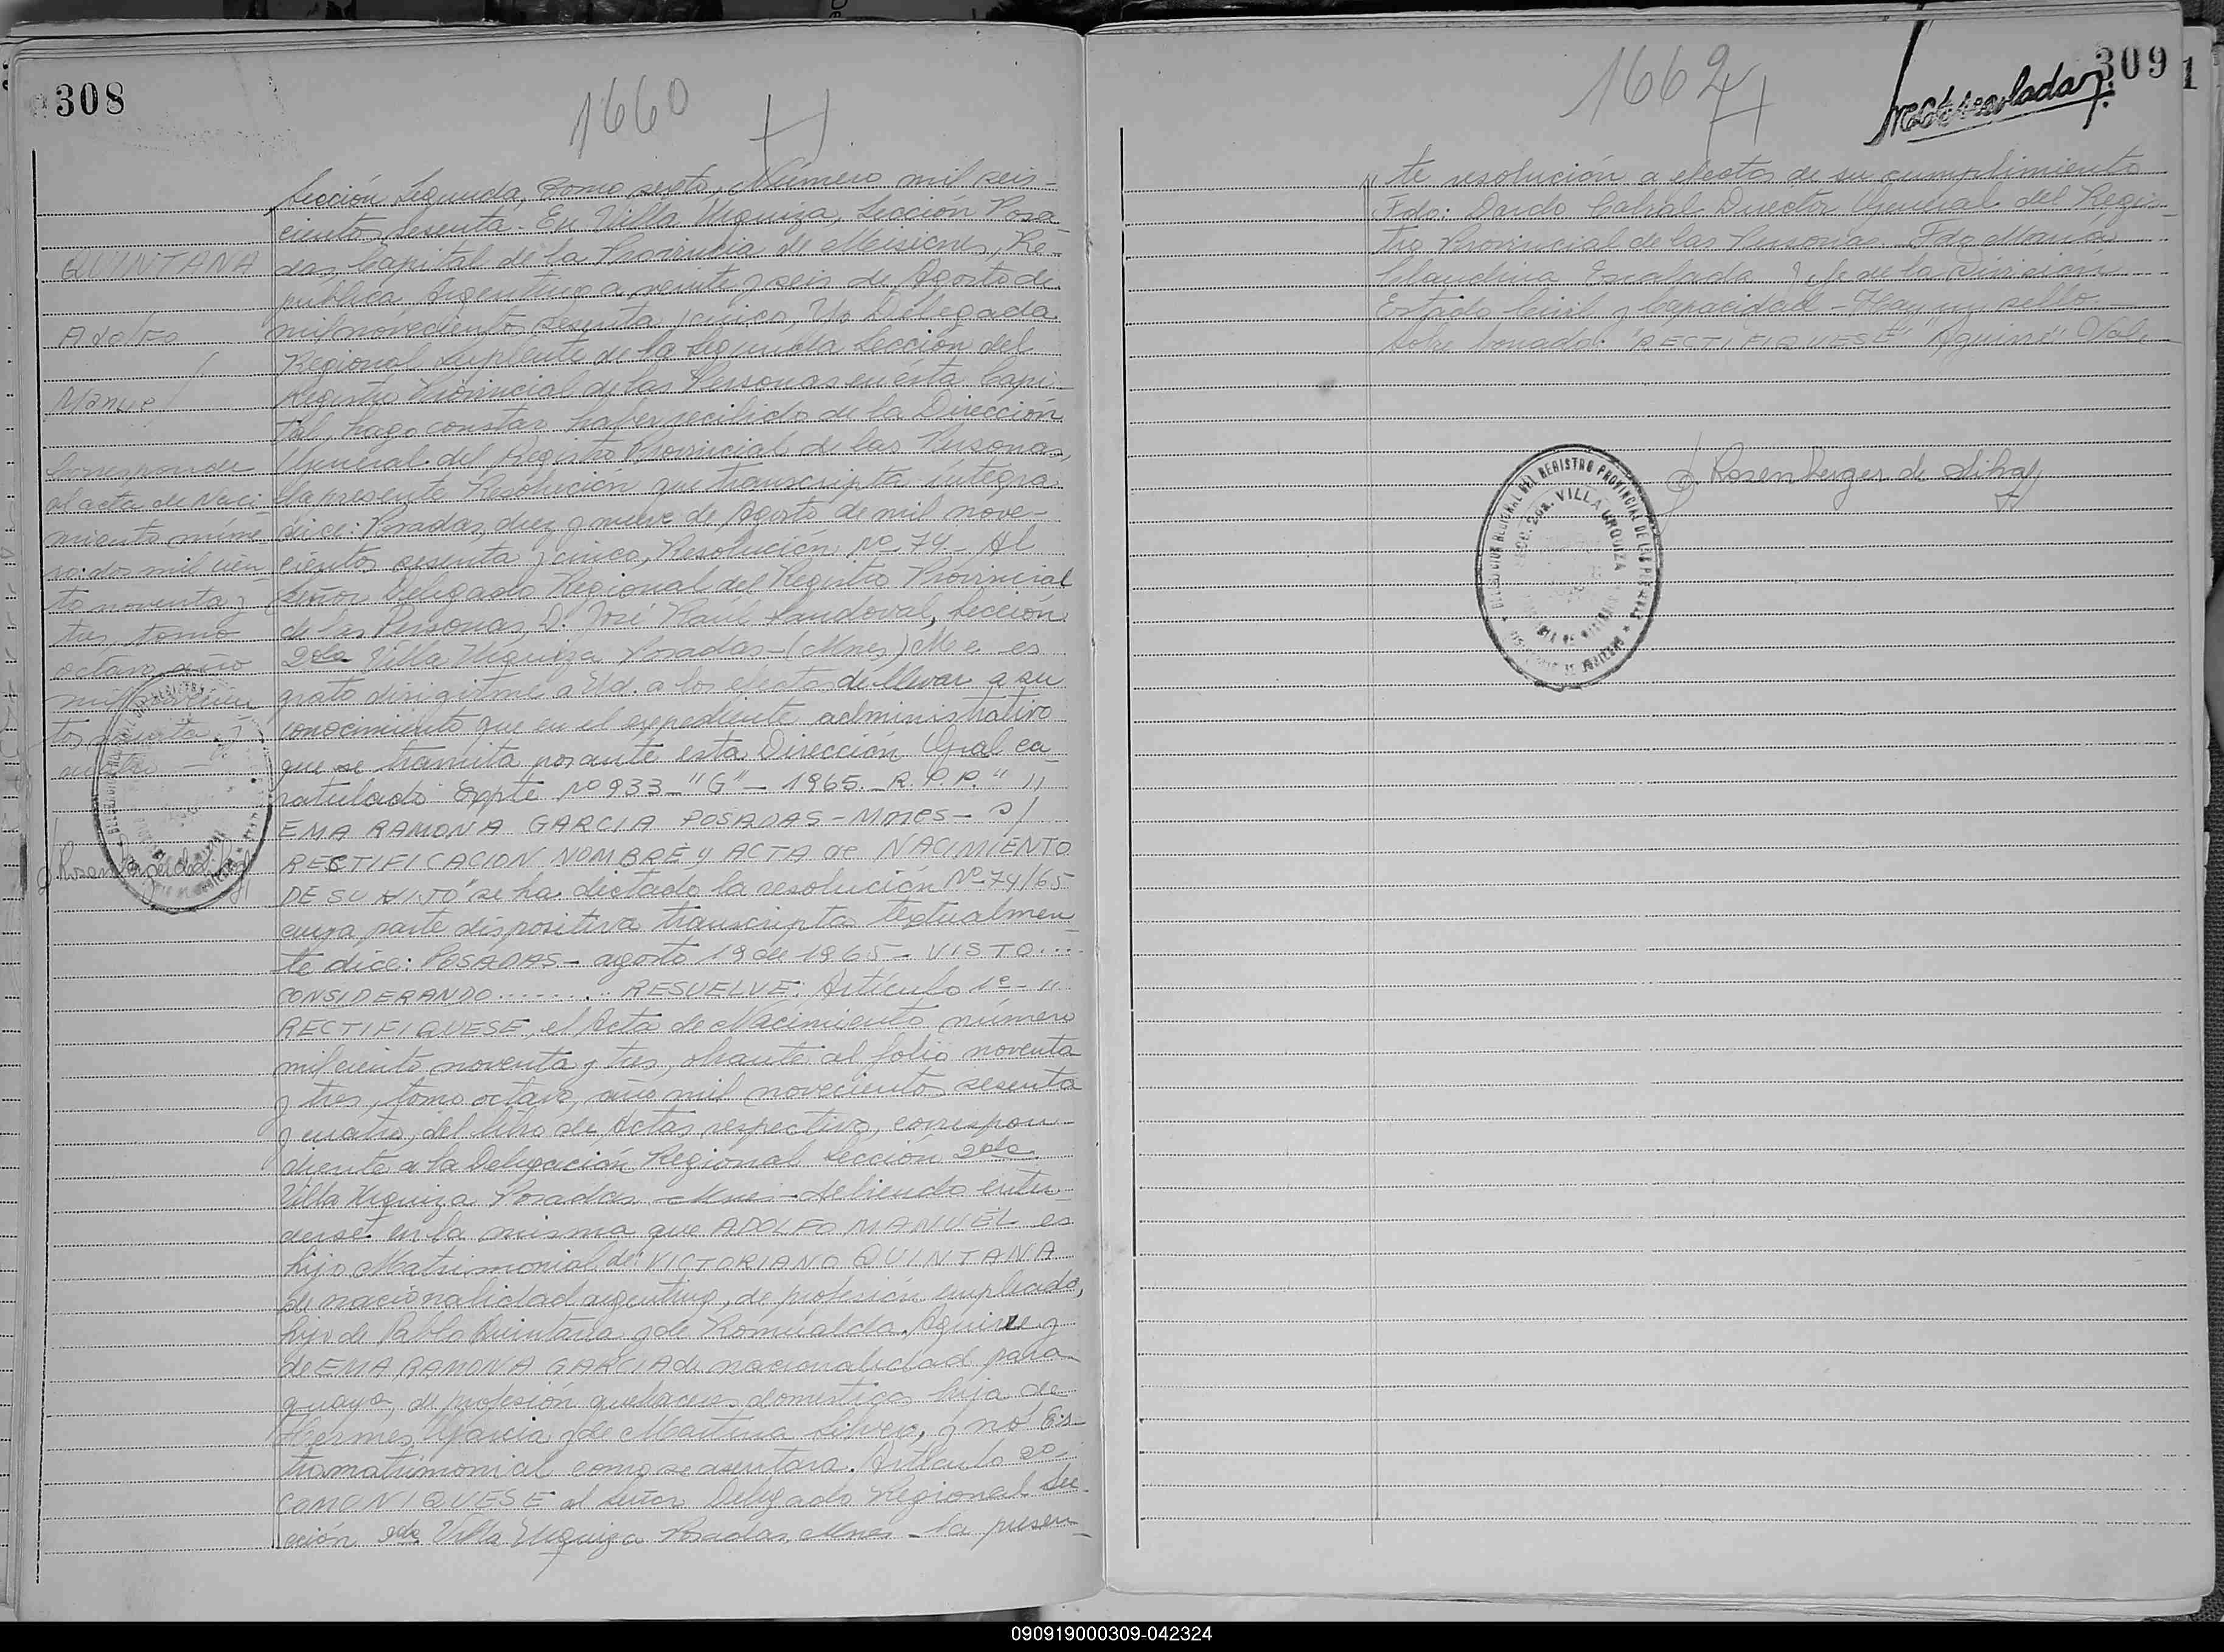 308
1660
QUINTANA
Adolfo
Manuel
Corresponde
al acta de Naci-
miento núme
ro: dos mil cien
to noventa y
tres, tomo
octavo, año
mil novecien
tos sesenta y
cuatro
Sección Segunda, Tomo sexto, Número mil seis-
cientos sesenta. En Villa Urquiza, Sección Posa-
das, Capital de la Provincia de Misiones, Re-
pública Argentina a veinte y seis de Agosto de
mil novecientos sesenta y cinco, Yo Delegada
Regional Suplente de la Segunda Sección del
Registro Provincial de las Personas en ésta Capi-
tal, hago constar haber recibido de la Dirección
General del Registro Provincial de las Personas,
la presente Resolución que transcripta íntegra
dice: Posadas, diez y nueve de Agosto de mil nove-
cientos sesenta y cinco, Resolución Nº 74 - Al
Señor Delegado Regional del Registro Provincial
de las Personas, D. José Raúl Sandoval, Sección
2da Villa Urquiza Posadas - (Mnes) Me es
grato dirigirme a Ud. a los efectos de llevar a su
conocimiento que en el expediente administrativo
que se tramita por ante esta Dirección Gral ca
ratulado Expte Nº 933 - "G" - 1965 - R.P.P. " "
EMA RAMONA GARCIA POSADAS - Mnes - s/
RECTIFICACION NOMBRE y ACTA de NACIMIENTO
DE SU HIJO" se ha dictado la resolución Nº 74/65
cuya parte dispositiva transcripta textualmen
te dice: POSADAS - agosto 19 de 1965 - VISTO...
CONSIDERANDO........ RESUELVE: Artículo 1º - "
RECTIFIQUESE, el Acta de Nacimiento número
mil ciento noventa y tres, obrante al folio noventa
y tres, tomo octavo, año mil novecientos sesenta
y cuatro, del libro de Actas respectivo, correspon-
diente a la Delegación Regional Sección 2da
Villa Urquiza Posadas - Mnes - debiendo enten-
derse en la misma que ADOLFO MANUEL es
hijo Matrimonial de: VICTORIANO QUINTANA
de nacionalidad argentino, de profesión empleado,
hijo de Pablo Quintana y de Romualda Aquino y
de EMA RAMONA GARCIA de nacionalidad para-
guaya, de profesión quehaceres domesticos hija de
Hermes Garcia y de Martina Silveo, y no Ex-
tramatrimonial como se asentara. Artículo 2º
COMUNIQUESE al Señor Delegado Regional Sec-
ción 2da Villa Urquiza Posadas, Mnes - la presen-
309
1
1662
te resolución a efectos de su cumplimiento
Fdo: Dardo Cabral Director General del Regis-
tro Provincial de las Personas - Fdo Maria
Claudina Escalada Jefe de la División
Estado Civil y Capacidad - Hay un sello -
Sobre borrado: "RECTIFIQUESE" "Aquino" Vale
DELEGACION REGIONAL DEL REGISTRO PROVINCIAL DE LAS PERSONAS
SECC. 2da. VILLA URQUIZA
Rosenberger de Silva
090919000309-042324